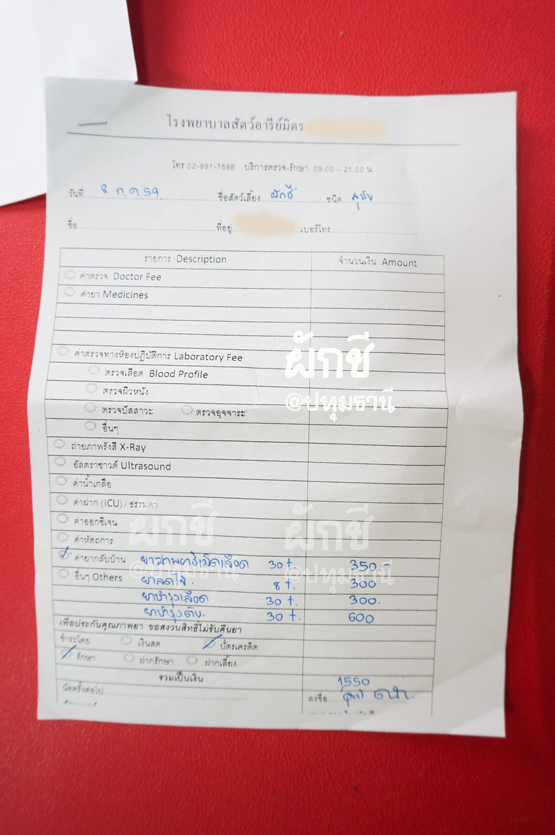 โรงพยาบาลสัตว์อารีย์มิตร
โทร 02-991-7586 บริการตรวจ-รักษา 09.00 – 21.00 น.
วันที่ 8 ก.ค 59. ชื่อสัตว์เลี้ยง ผักชี ชนิด สุนัข
ชื่อ ที่อยู่ เบอร์โทร
รายการ Description จำนวนเงิน Amount
ค่าตรวจ Doctor Fee
ค่ายา Medicines
ค่าตรวจทางห้องปฏิบัติการ Laboratory Fee
ตรวจเลือด Blood Profile
ตรวจผิวหนัง
ตรวจปัสสาวะ ตรวจอุจจาระ
อื่นๆ
ถ่ายภาพรังสี X-Ray
อัลตราซาวด์ Ultrasound
ค่าน้ำเกลือ
ค่าฝาก (ICU) / ธรรมดา
ค่าออกซิเจน
ค่าหัตถการ
ค่ายากลับบ้าน ยาฆ่าพยาธิเม็ดเลือด 30 t. 350.-
อื่นๆ Others ยาลดไข้ 8 t. 300
ยาบำรุงเลือด 30 t. 300.
ยาบำรุงตับ. 30 t. 600
เพื่อประกันคุณภาพยา ขอสงวนสิทธิ์ไม่รับคืนยา
ชำระโดย เงินสด บัตรเครดิต
รักษา ฝากรักษา ฝากเลี้ยง
รวมเป็นเงิน 1550
นัดครั้งต่อไป ลงชื่อ
ผักชี
@ปทุมธานี
ผักชี
@ปทุมธานี
ผักชี
@ปทุมธานี